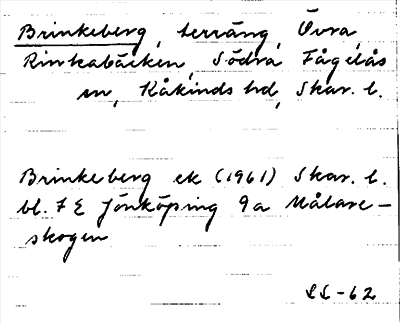 Brinkeberg, terräng, Övra
Rinkabäcken, Södra Fågelås
sn, Kåkinds hd, Skar. l.
Brinkeberg ek (1961) Skar. l.
bl. 7 E Jönköping 9a Målare-
skogen
SL-62